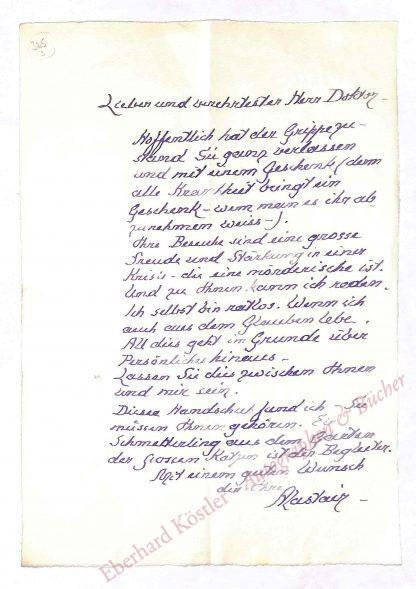 Lieber und verehrtester Herr Doktor –
Hoffentlich hat der Grippezu-
stand Sie ganz verlassen
und mit einem Geschenk (denn
alle Krankheit bringt ein
Geschenk – wenn man es ihr ab
zunehmen weiss –).
Ihre Besuche sind eine grosse
Freude und Stärkung in einer
Krisis – die eine mörderische ist.
Und zu Ihnen kann ich reden.
Ich selbst bin ratlos. Wenn ich
auch aus dem Glauben lebe.
All dies geht im Grunde über
Persönliches hinaus –
Lassen Sie dies zwischen Ihnen
und mir sein.
Diese Handschuh fand ich. Sie
müssen Ihnen gehören. Ein
Schmetterling aus dem Garten
der grossen Katzen ist der Begleiter.
Mit einem guten Wunsch
der Ihre
Alastair –
Eberhard Köstler Autographen & Bücher